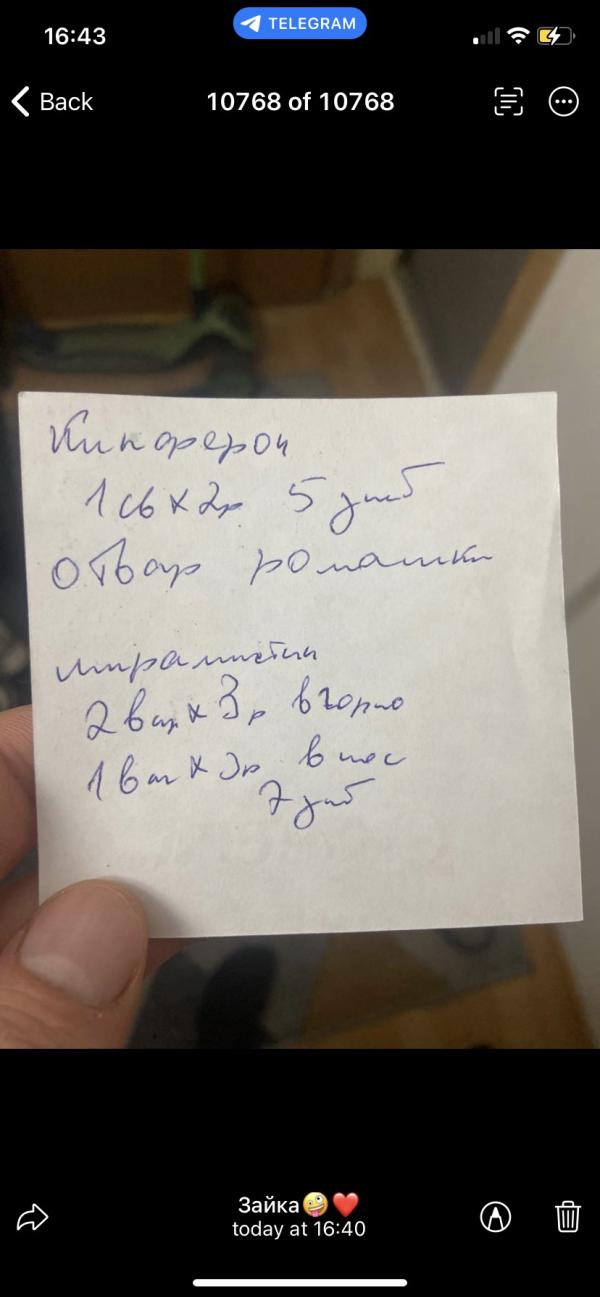 16:43
TELEGRAM
Back
10768 of 10768
Кипферон
1 св х 2р 5 дней
отвар ромашки
мирамистин
2 впр х 3р в горло
1 вп х 3р в нос
7 дней
Зайка🤪❤️
today at 16:40